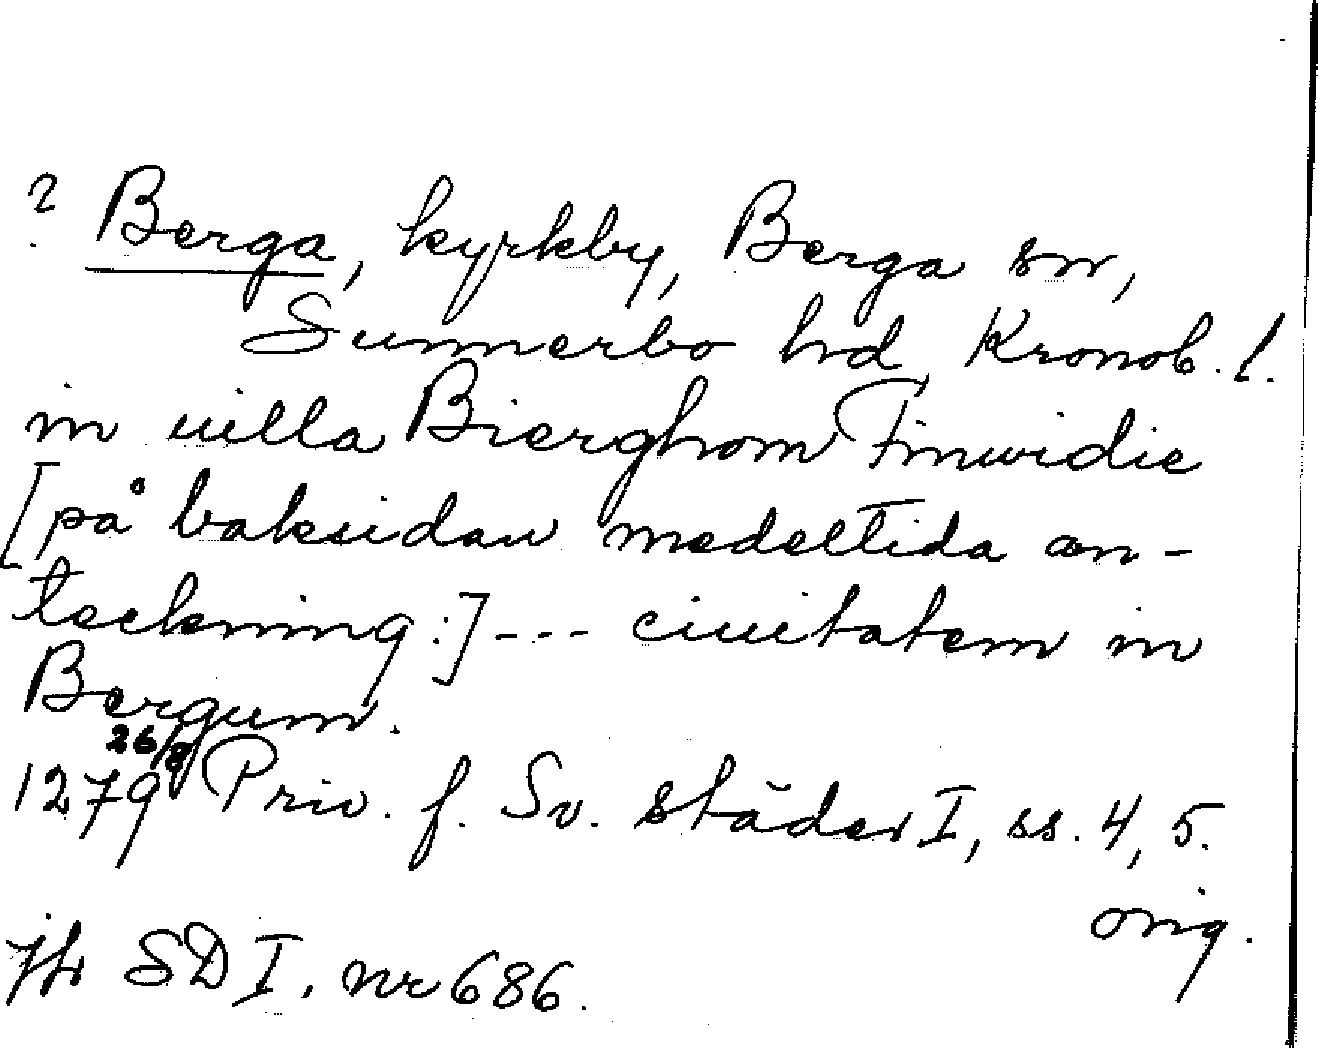 ? Berga, kyrkby, Berga sn,
Sunnerbo hd, Kronob. l.
in uilla Bierghom Finwidie
[på baksidan medeltida an-
teckning:] --- ciuitatem in
Bergum.
1279 26/8 Priv. f. Sv. städer I, ss. 4, 5.
orig.
Jfr SD I, nr 686.